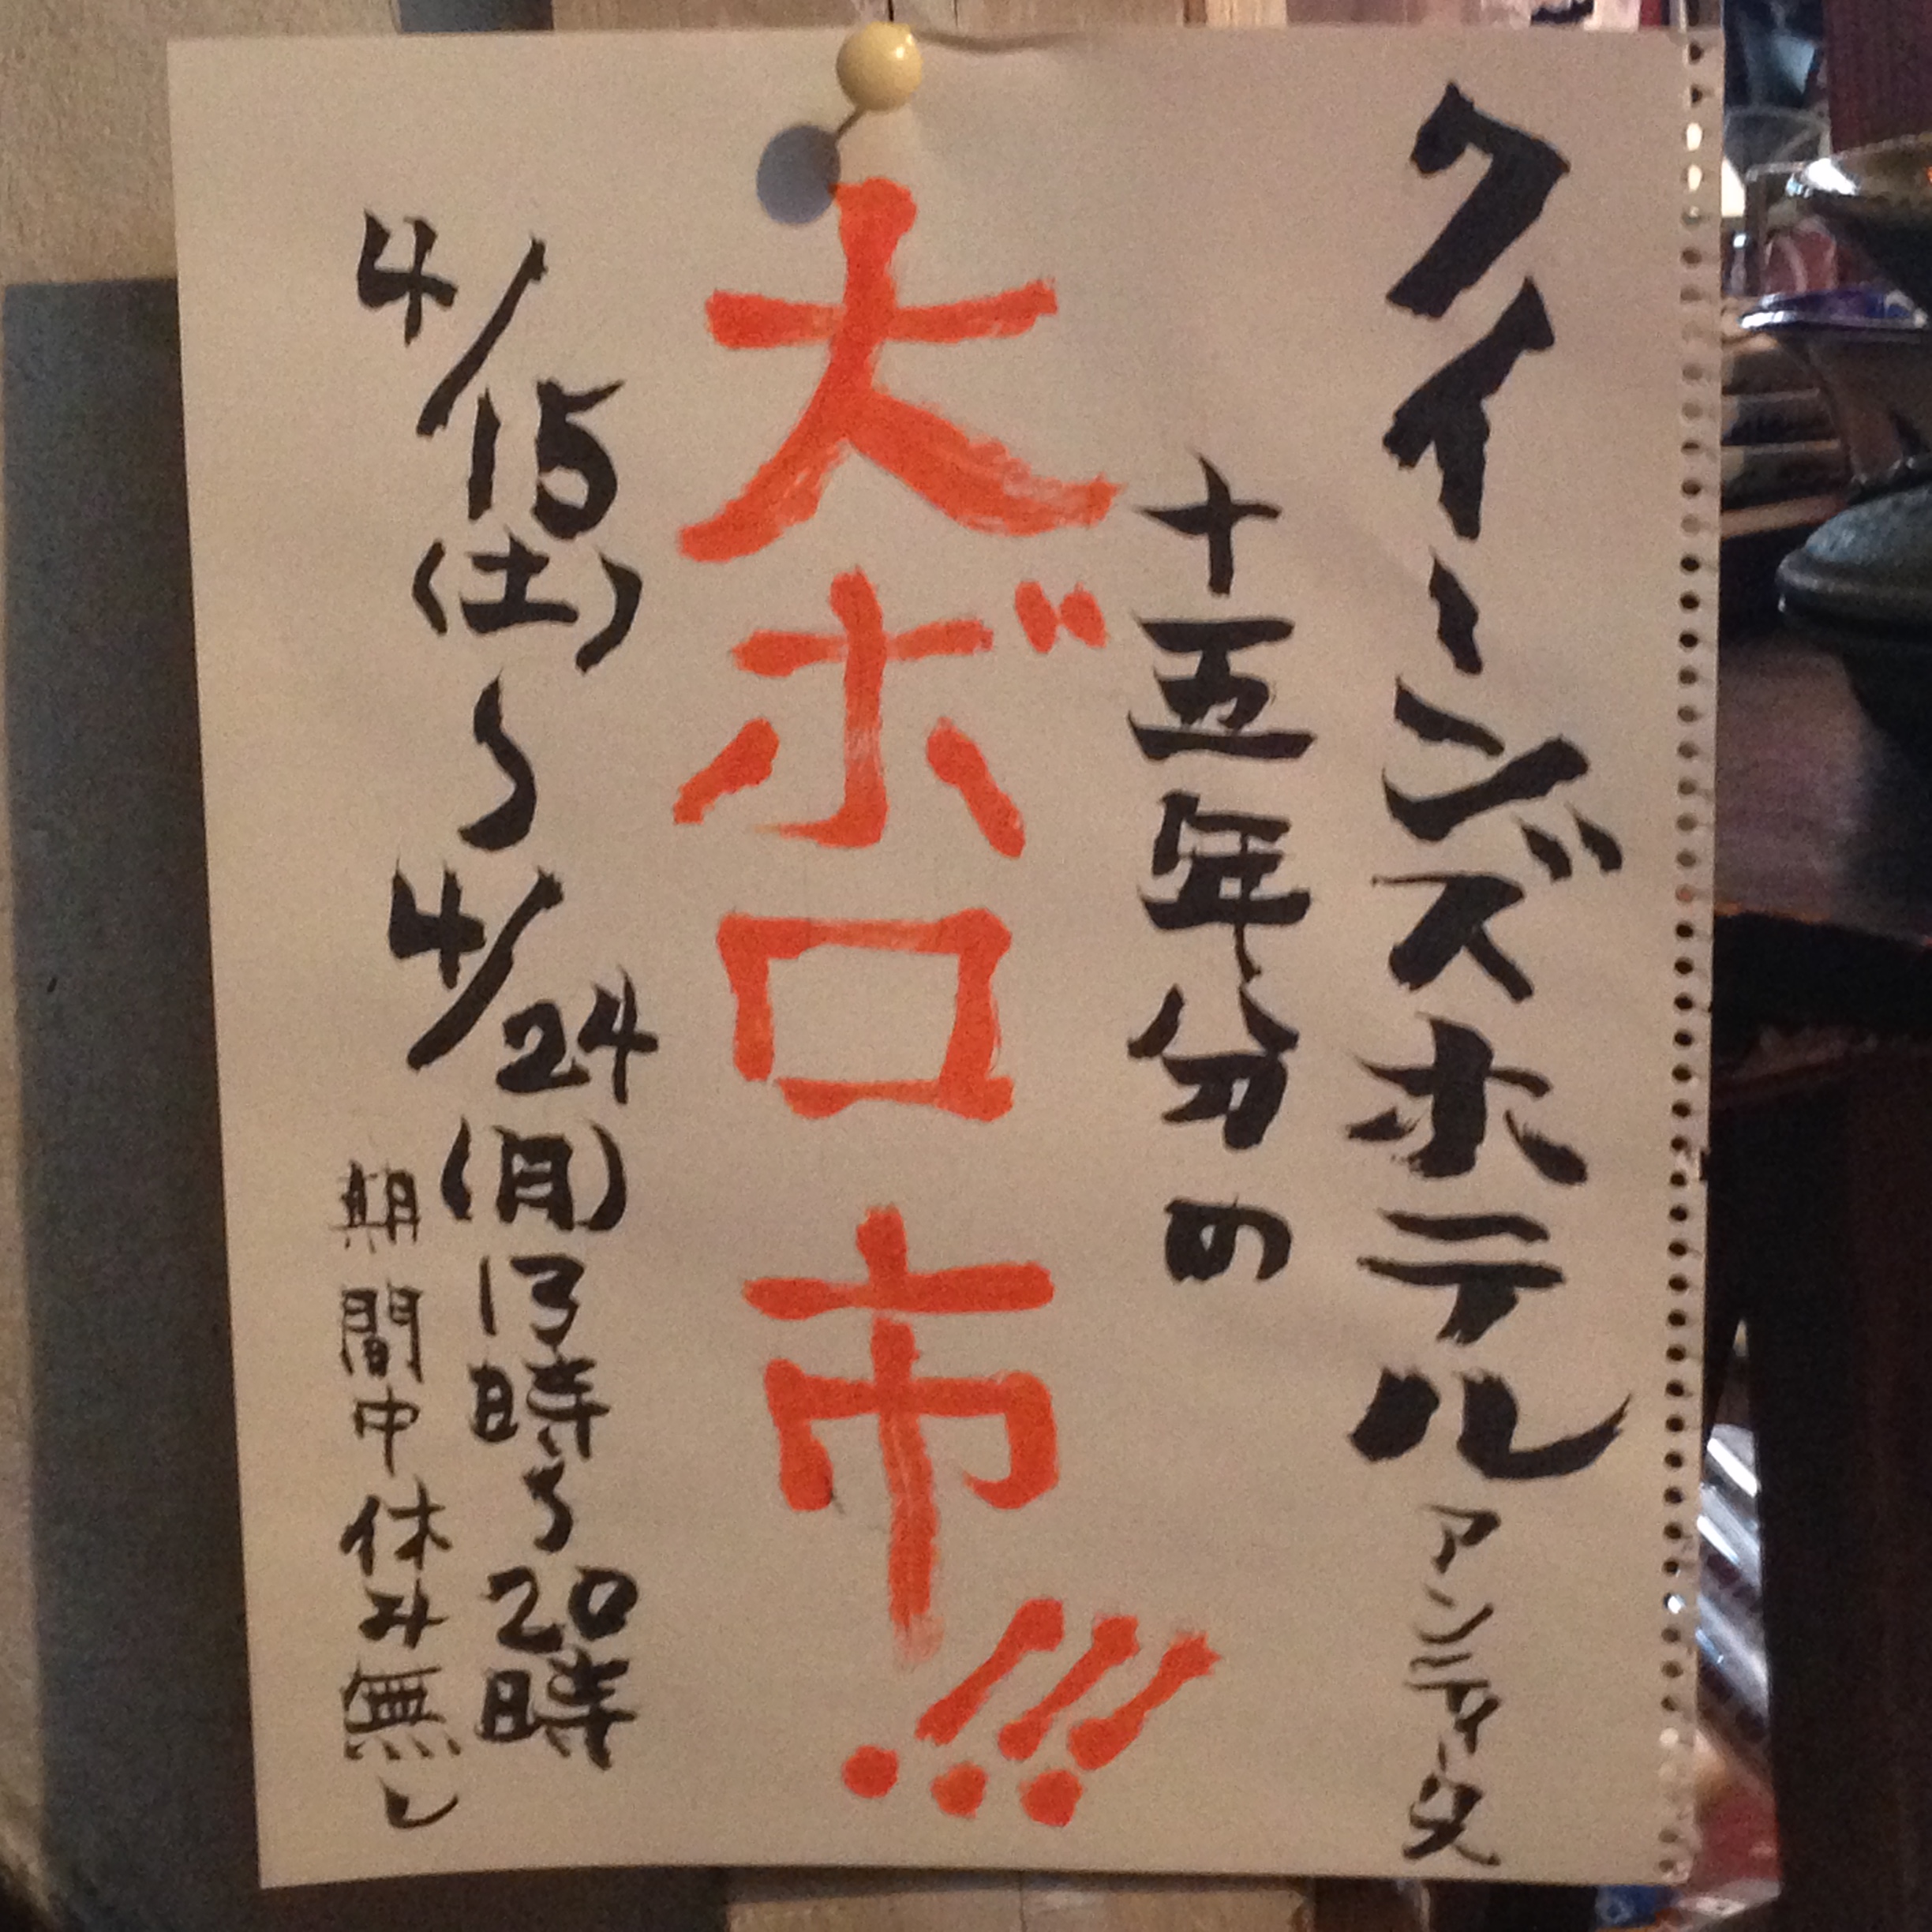 クイーンズホテル アンティークス
十五年分の
大ボロ市!!!
4/15(土)〜4/24(月)13時〜20時
期間中休み無し